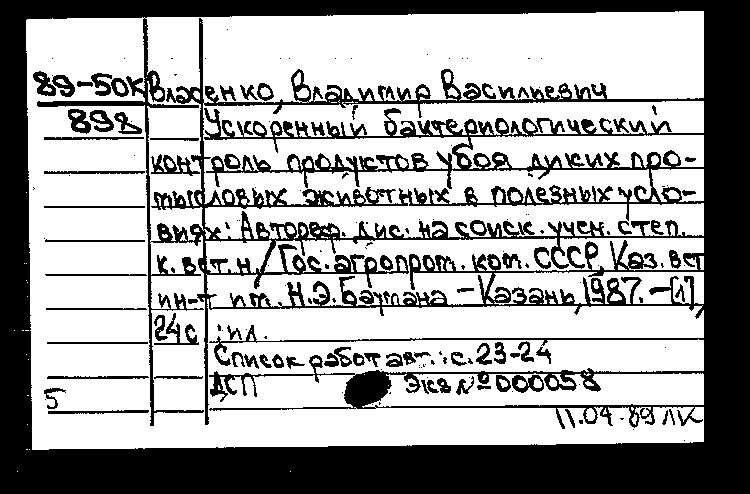 89-50К Власенко, Владимир Васильевич
898 Ускоренный бактериологический
контроль продуктов убоя диких про-
мысловых животных в полезных усло-
виях: Автореф. дис. на соиск. учен. степ.
к. вет. н. / Гос. агропром. ком. СССР, Каз. вет
ин-т им. Н.Э. Баумана - Казань, 1987. - [1],
24с : ил.
Список работ авт.: с. 23-24
ДСП Экз № 000058
5
11.04.89 ЛК